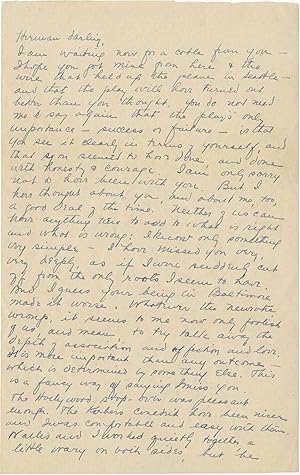 Herman darling,
I am waiting now for a cable from you –
I hope you got mine from here & the
wire that held up the plane in Seattle –
and that the play will have turned out
better than you thought. You do not need
me to say again that the play's only
importance – success or failure – is that
you see it clearly in terms of yourself, and
that you seemed to have done, and done
with honesty & courage. I am only sorry
not to have been with you. But I
have thought about you, and about me, too,
a good deal of the time. Neither of us can
have anything new to add to what is right
and what is wrong: I know only something
very simple – I have missed you very,
very deeply, as if I were suddenly cut
off from the only roots I seem to have.
And I guess your being in Baltimore
made it worse. Whatever the
wrongs, it seems to me now only foolish
of us, and mean, to try take away the
depth of association and affection and love.
It is more important than any outcome –
which is determined by something else. This
is a fancy way of saying I miss you.
The Hollywood stop-over was pleasant
enough. The have been nicer
and I was comfortable and easy with them.
and I worked quietly together, a
little wary on both sides, but he